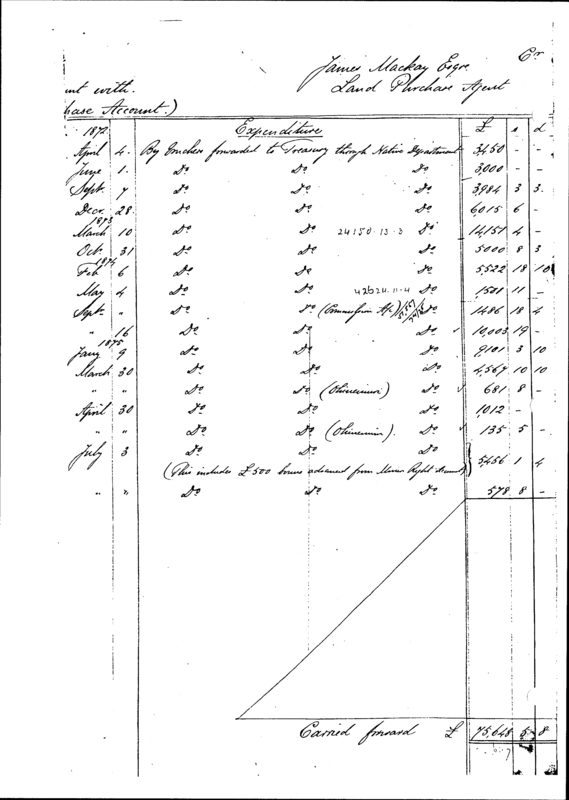 James Mackay Esqre Cr
unt with. Land Purchase Agent
hase Account.)
1872. Expenditure £ s d
April 4. By Vouchers forwarded to Treasury through Native Department 3450 - -
June 1. Do Do Do 3,000 - -
Sept. 7 Do Do Do 3,984 3 3.
Decr. 28 Do Do Do 6,015 6 -
1873
March 10 Do Do 24150-13-3 Do 14,151 4 -
Oct. 31 Do Do Do 5000 8 3
1874
Feb 6 Do Do Do 5,522 18 10
May 4 Do Do 42624.11.4 Do 1501 11 -
Sept. " Do Do (Commission Ac/) Do 1486 18 4
" 16 Do Do Do 10,003 19 -
1875
Jany 9 Do Do Do 9101 3 10
March 30 Do Do Do 4,567 10 10
" " Do Do (Ohinemuri) Do 681 8 -
April 30 Do Do Do 1,012 - -
" " Do Do (Ohinemuri). Do 135 5 -
July 3 Do Do Do
(This includes £500 bonus advanced from Miners Right Account) 5,456 1 4
" " Do Do Do 578 8 -
Carried forward £ 75,648 5 8